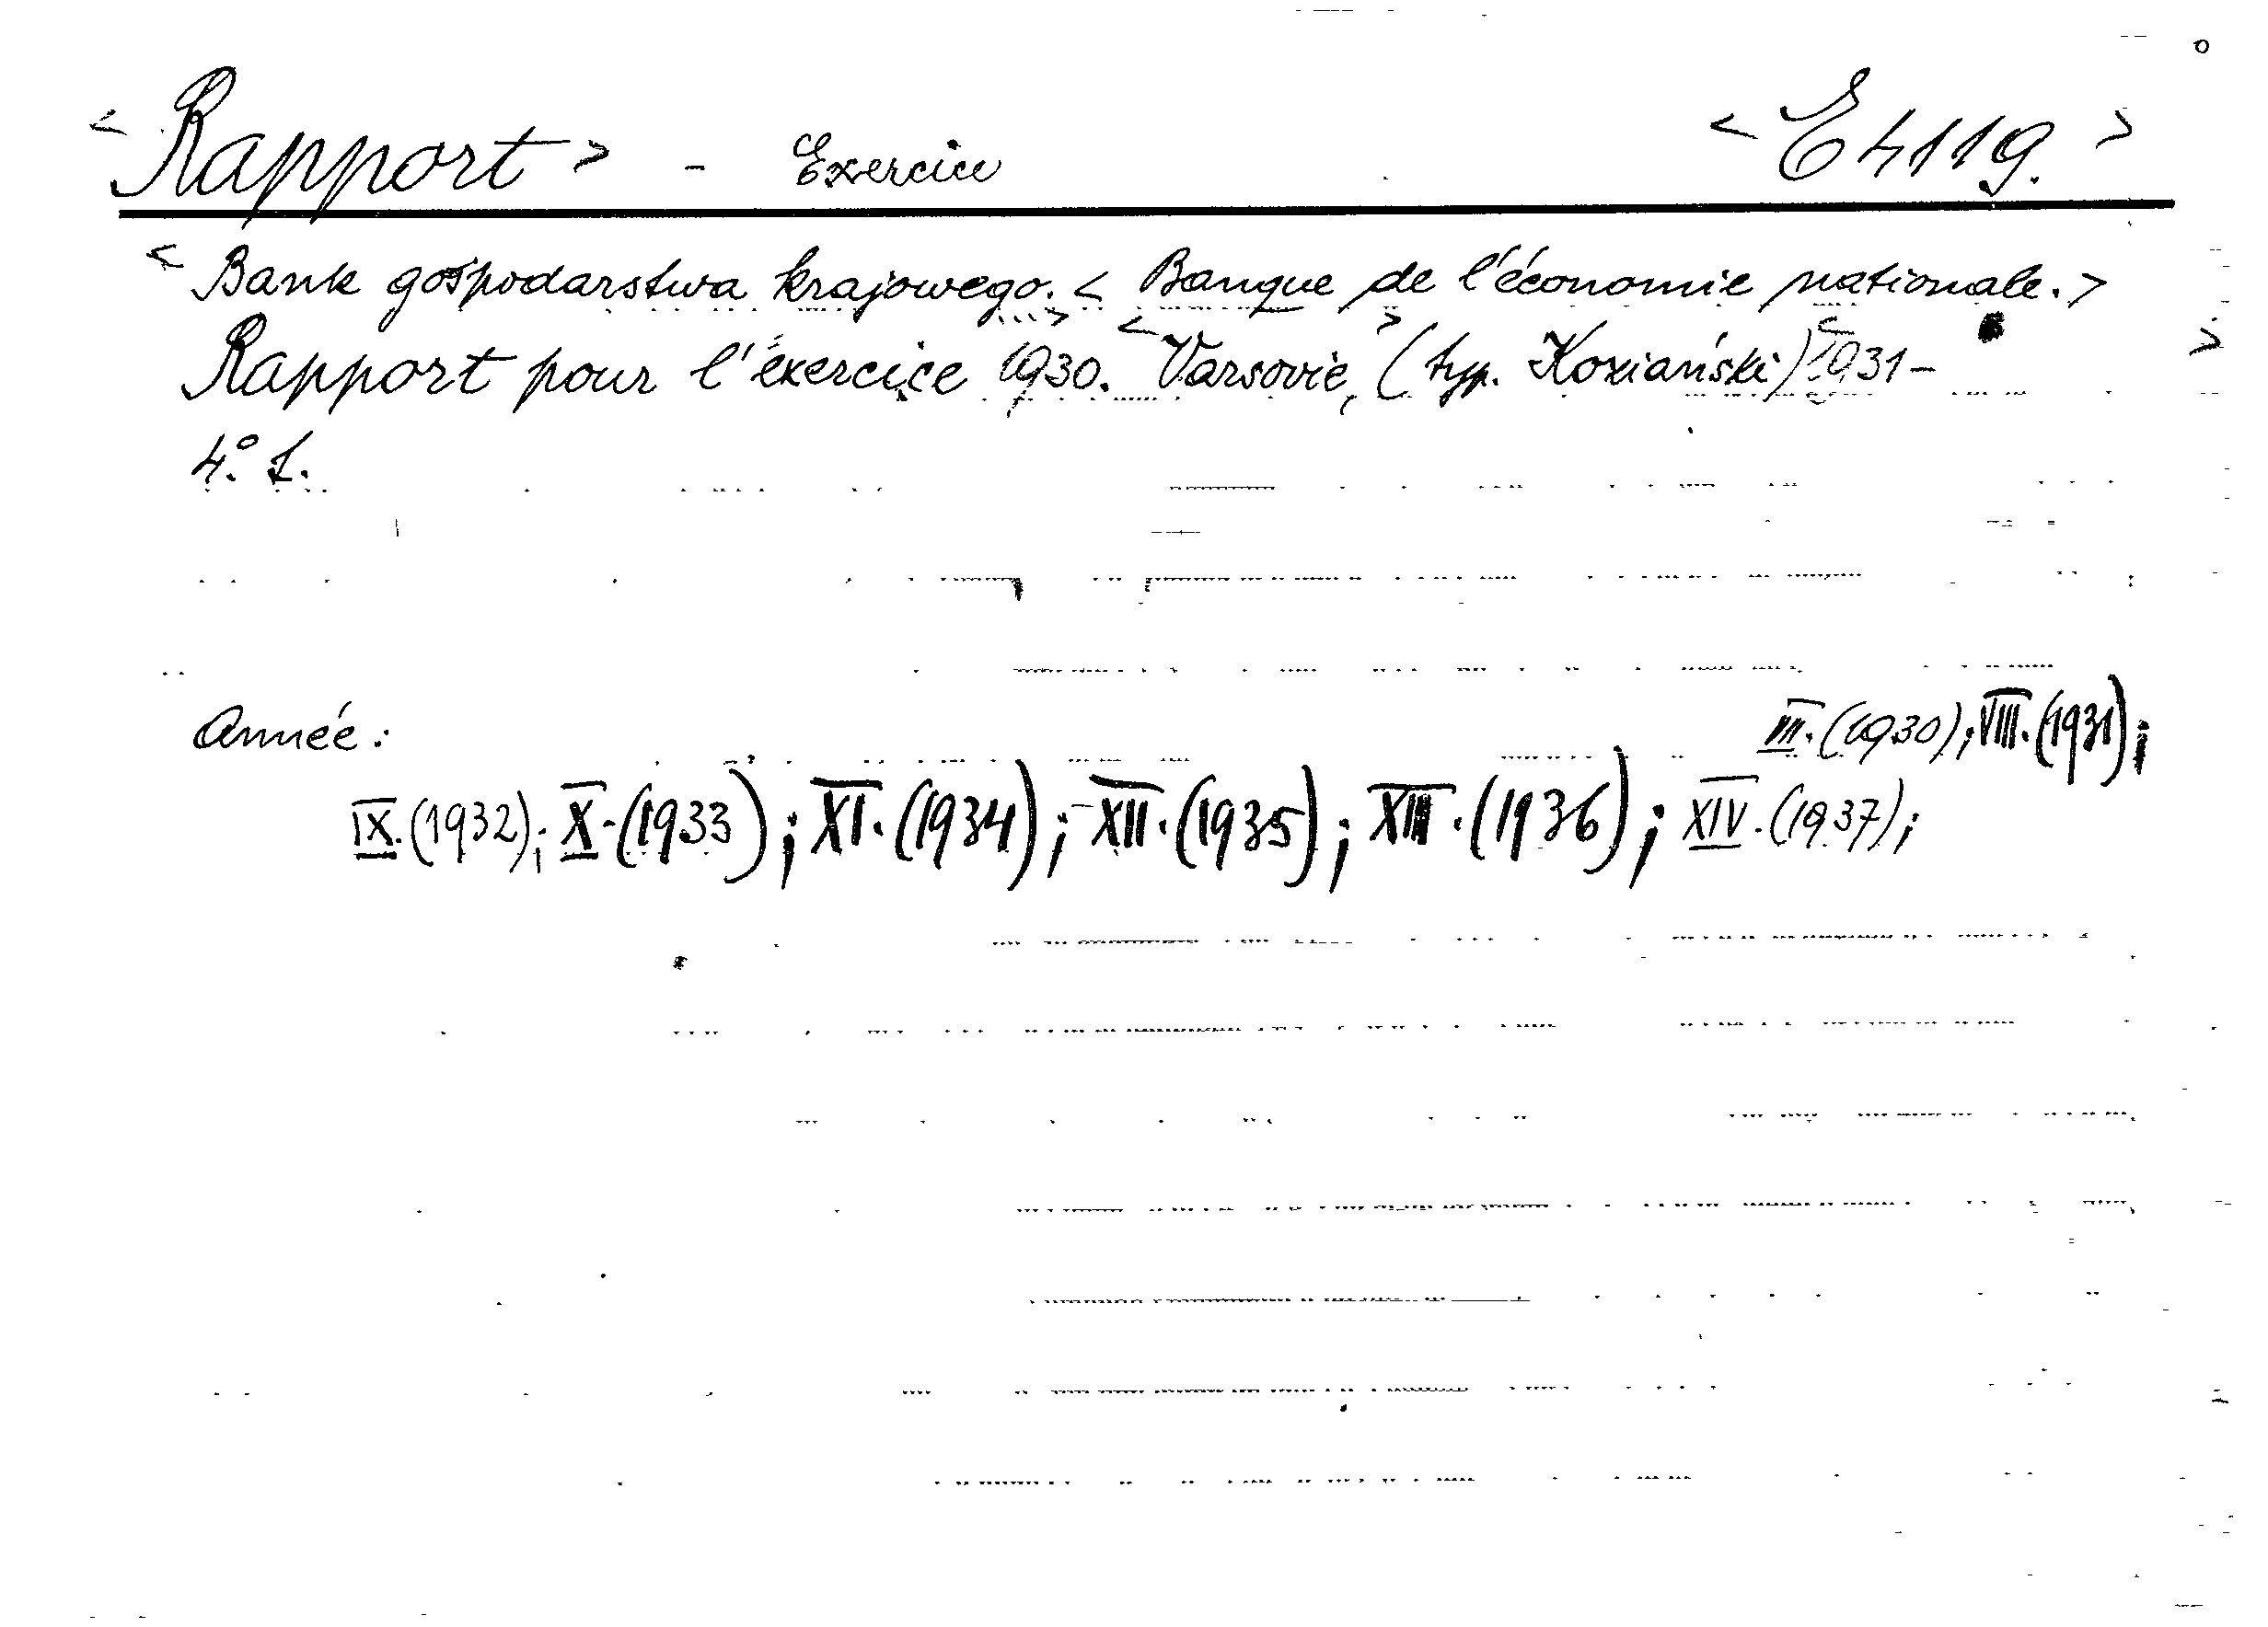 < Rapport > - Exercice < E 4119. >
< Bank gospodarstwa krajowego. < Banque de l'économie nationale. >
Rapport pour l'éxercice 1930. > < Varsovie, > (typ. Koziański) < 1931 - >
4º. 1.
Année: VII. (1930); VIII. (1931);
IX. (1932); X. (1933); XI. (1934); XII. (1935); XIII. (1936); XIV. (1937);